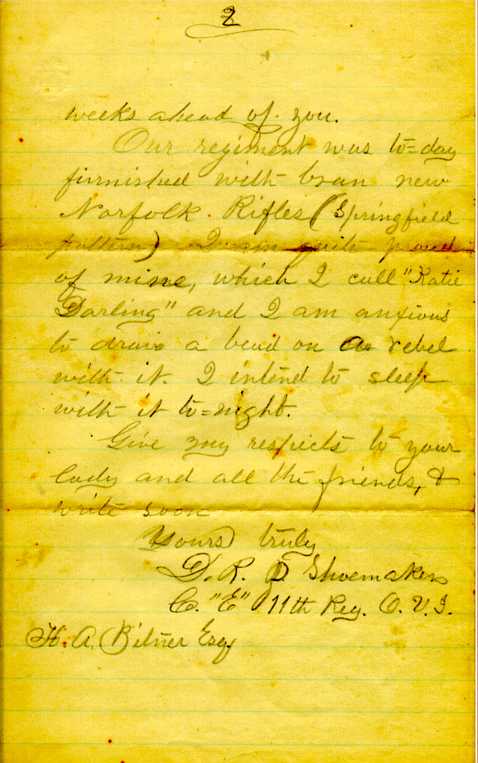 2
weeks ahead of you.
Our regiment was to=day
furnished with bran new
Norfolk Rifles (Springfield
pattern) I am quite proud
of mine, which I call "Katie
Darling" and I am anxious
to draw a bead on a rebel
with it. I intend to sleep
with it to=night.
Give my respects to your
lady and all the friends, &
write soon
Yours truly
D. R. Shoemaker
C. "E" 11th Reg. O. V. I.
H. A. Bitner Esq.